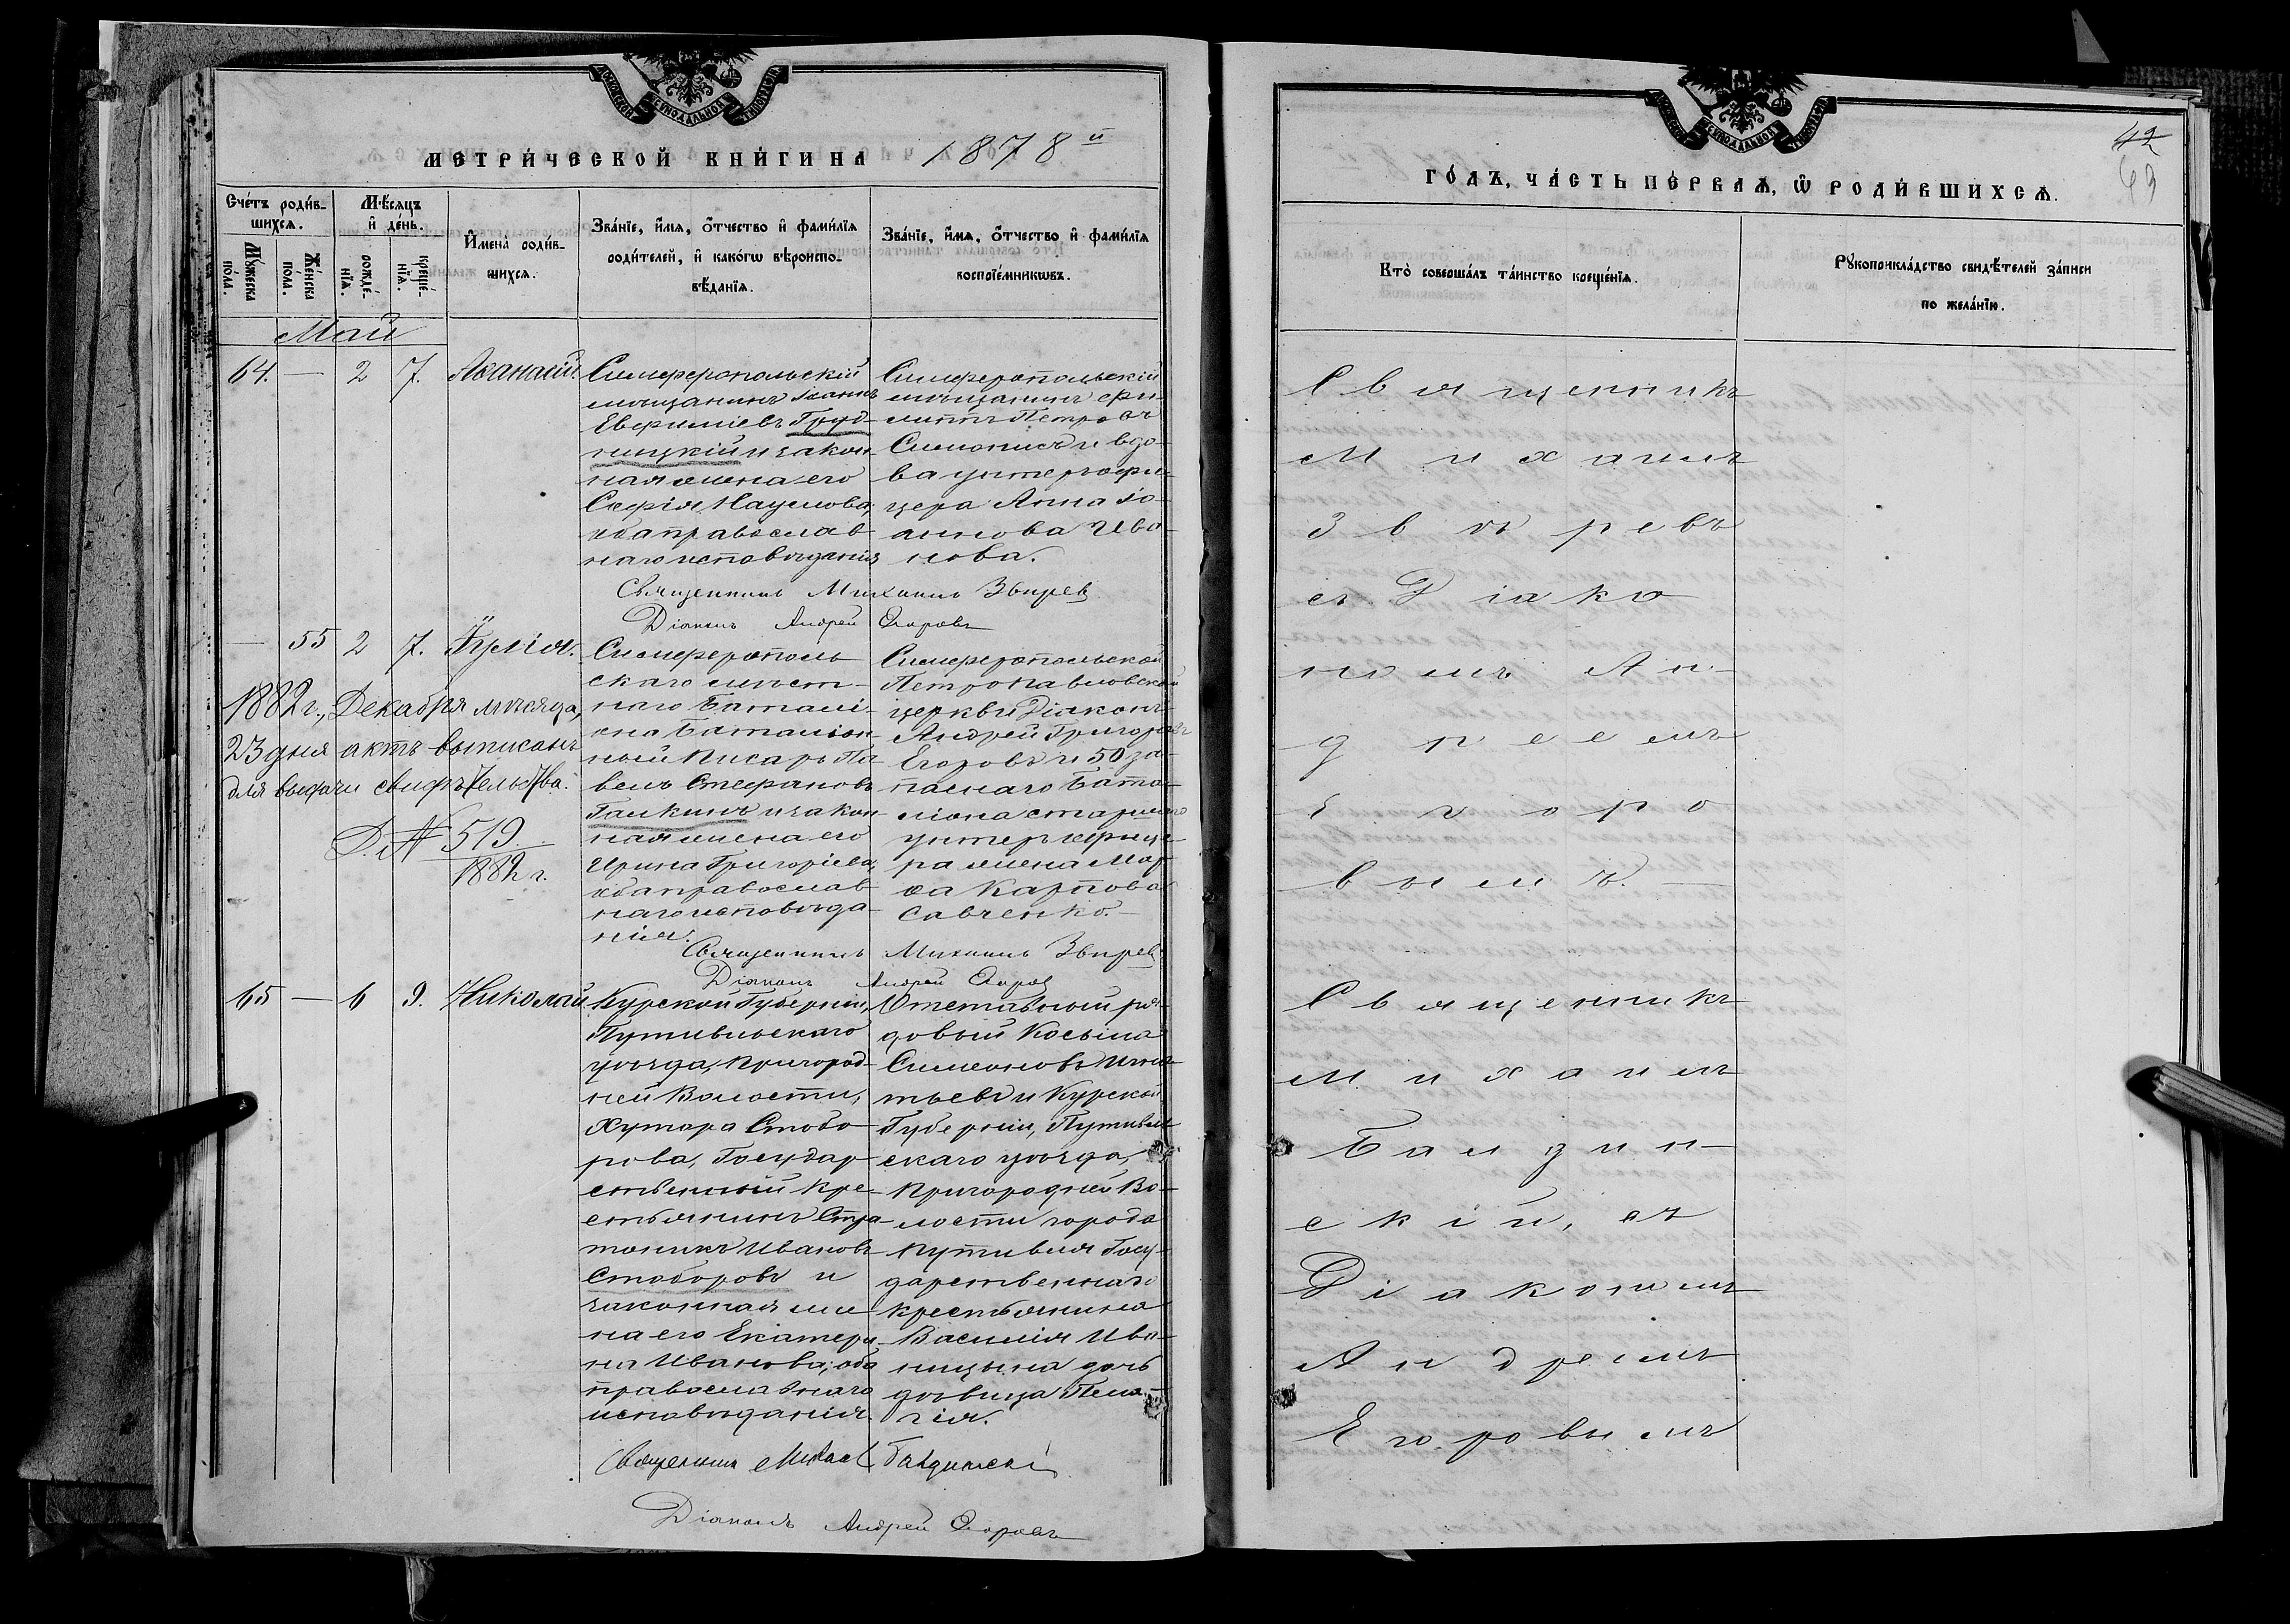 МОСКОВСКОЙ СѴНОДАЛЬНОЙ ТИПОГРАФІИ
МЕТРИ́ЧЕСКОЙ КНИ́ГИ НА 1878й
Сче́тъ роди́в-
шихсѧ.
Мѣ́сѧцъ
и҆ де́нь.
И҆мена̀ роди́в-
шихсѧ.
Зва́нїе, и҆́мѧ, ѻ҆́тчество и҆ фами́лїѧ
роди́телей, и҆ како́гѡ вѣроиспо-
вѣ́данїѧ.
Зва́нїе, и҆́мѧ, ѻ҆́тчество и҆ фами́лїѧ
воспрїе́мникѡвъ.
Мꙋ́жеска
по́ла.
Же́нска
по́ла.
рожде́-
нїѧ.
креще́-
нїѧ.
Май
64. — 2 7. Аѳанасій.
Симферопольскій
мѣщанинъ Іоаннъ
Евфиміевъ Груд-
ницкій и закон-
ная жена его
Софія Наумова,
оба православ-
наго исповѣданія
Симферопольскій
мѣщанинъ Фи-
липпъ Петровъ
и вдо-
ва унтеръ офи-
цера Анна Іо-
аннова Ива-
нова.
Священникъ Михаилъ Звѣрев
Діаконъ Андрей Егоровъ
— 55 2 7. Іулія.
Симферополь-
скаго мѣст-
наго Баталі-
она Баталіон-
ный Писарь Па-
велъ Стефановъ
Галкинъ и закон-
ная жена его
Ирина Григоріева,
оба православ-
наго исповѣда-
нія.
Симферопольской
Петропавловской
церкви Діаконъ
Андрей Григорьевъ
Егоровъ и 50 за-
паснаго Бата-
ліона старшаго
унтеръ офице-
ра жена Мар-
ѳа Карпова
Савченко.
1882 г., Декабря мѣсяца,
23 дня актъ выписанъ
для выдачи свидѣтельства.
Д. № 519
1882 г.
Священникъ Михаилъ Звѣрев
Діаконъ Андрей Егоров
65 — 6 9. Николай
Курской Губерніи,
Путивльскаго
уѣзда, Пригород-
ней Волости,
Хутора Стобо-
рова, Государ-
ственный Кре-
стьянинъ Стра-
тоникъ Ивановъ
Стоборовъ и
законная же-
на его Екатери-
на Иванова, оба
православнаго
исповѣданія.
Отставной ря-
довый Косьма
Симеоновъ Игна-
тьевъ и Курской
Губерніи, Путивль-
скаго уѣзда,
Пригородней Во-
лости города
Путивля Госу-
дарственнаго
крестьянина
Василія Ива-
ницына дочь
дѣвица Пела-
гія.
Священникъ Михаил Балдинскі
Діаконъ Андрей Егоровъ
МОСКОВСКОЙ СѴНОДАЛЬНОЙ ТИПОГРАФІИ
42
43
ГО́ДЪ, ЧА́СТЬ ПЕ́РВАѦ, Ѡ҆ РОДИ́ВШИХСѦ.
Кто̀ соверша́лъ та́инство креще́нїѧ.
Рꙋкоприкла́дство свидѣ́телей за́писи
по жела́нїю.
Священникъ
Михаилъ
Звѣревъ
съ Діако-
номъ Ан-
дреемъ
Егоро-
вымъ. —
Священникъ
Михаилъ
Балдин-
скій, съ
Діакономъ
Андреемъ
Егоровымъ